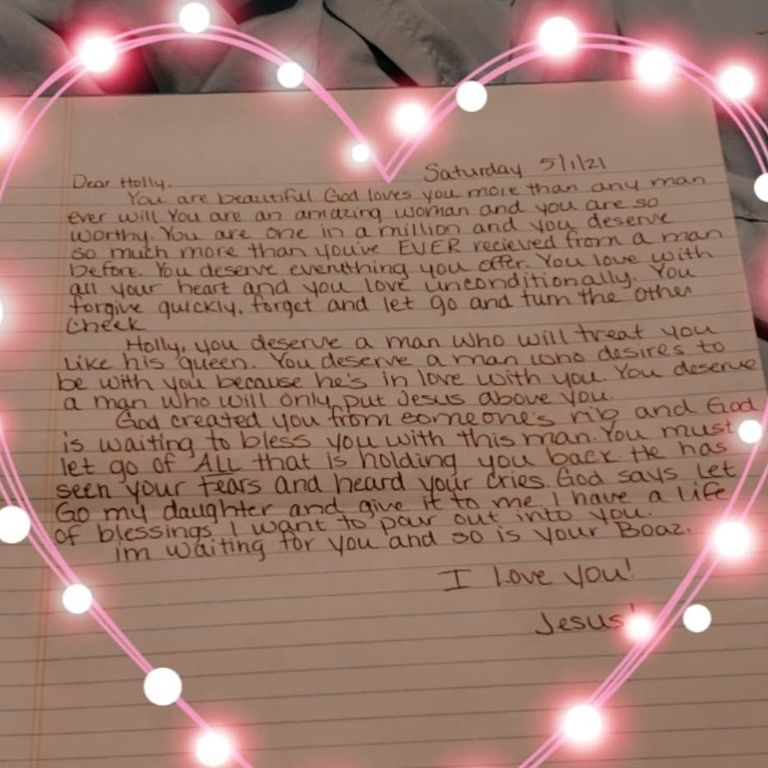 Saturday 5/1/21
Dear Holly,
You are beautiful. God loves you more than any man
ever will. You are an amazing woman and you are so
worthy. You are one in a million and you deserve
so much more than you've EVER recieved from a man
before. You deserve everything you offer. You love with
all your heart and you love unconditionally. You
forgive quickly, forget and let go and turn the other
cheek
Holly, you deserve a man who will treat you
like his queen. You deserve a man who desires to
be with you because he's in love with you. You deserve
a man who will only put Jesus above you.
God created you from someone's rib and God
is waiting to bless you with this man. You must
let go of ALL that is holding you back. He has
seen your tears and heard your cries. God says Let
Go my daughter and give it to me I have a life
of blessings I want to pour out into you.
im waiting for you and so is your Boaz.
I love you!
Jesus!